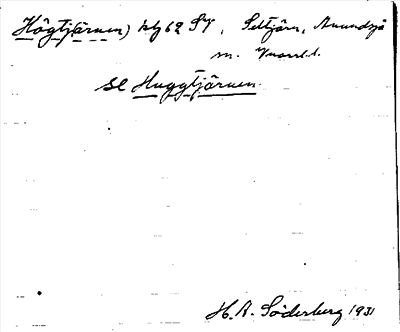 Högtjärnen) kbl 62 SV, Seltjärn, Anundsjö
sn. Västl.
se Huggtjärnen.
H. A. Söderberg 1931